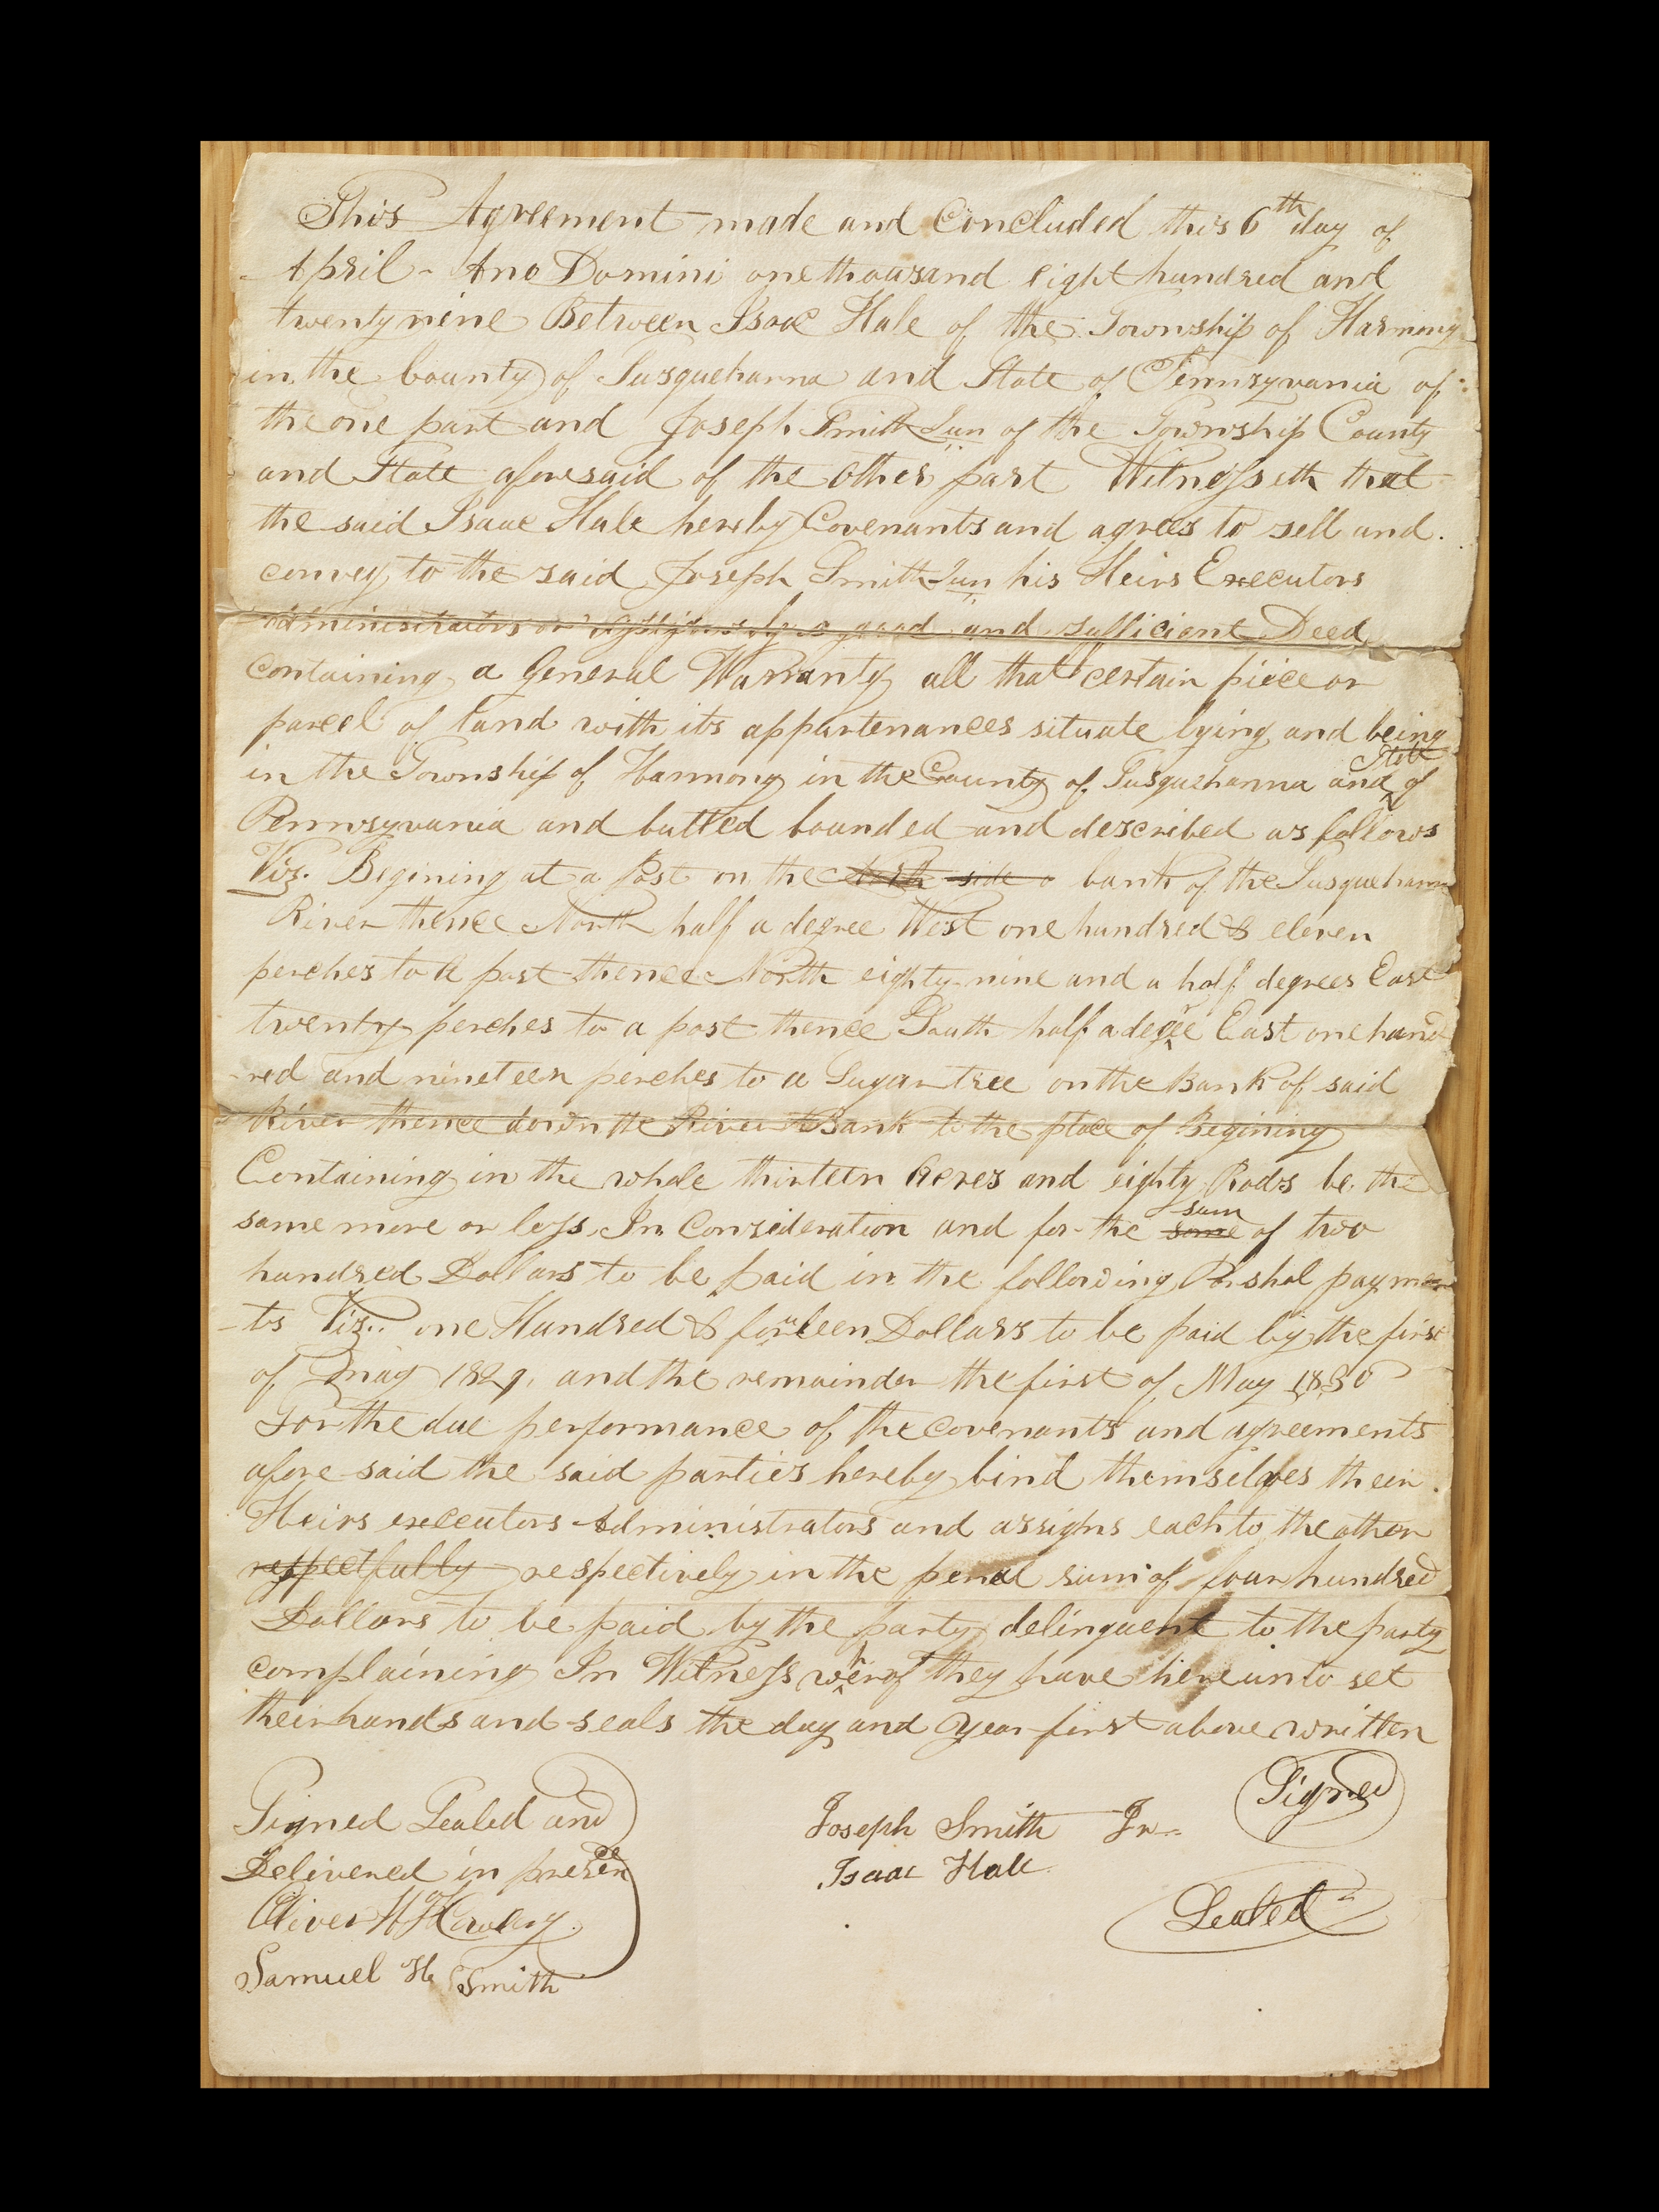 This Agreement made and Concluded this 6th day of
April - Ano Domini one thousand eight hundred and
twenty nine Between Isaac Hale of the Township of Harmony
in the County of Susquehanna and State of Pennsyvania of
the one part and Joseph Smith Jun of the Township County
and State aforesaid of the other part Witnesseth that
the said Isaac Hale hereby Covenants and agrees to sell and
convey to the said Joseph Smith Jun his Heirs Executors
Administrators or Assigns by a good and sufficient Deed
containing a General Warranty all that certain piece or
parcel of land with its appurtenances situate lying and being
in the Township of Harmony in the County of Susquehanna and State of
Pennsyvania and butted bounded and described as follows
Viz. Begining at a Post on the North side o bank of the Susquehanna
River thence North half a degree West one hundred & eleven
perches to a post thence North eighty-nine and a half degrees East
twenty perches to a post thence South half a degree East one hund
-red and nineteen perches to a Sugar tree on the Bank of said
River thence down the River Bank to the place of Begining
Containing in the whole thirteen Acres and eighty Rods be the
same more or less. In Consideration and for the some sum of two
hundred Dollars to be paid in the following Parshal paymen
-ts Viz.. one Hundred & fourteen Dollars to be paid by the first
of May 1829. and the remainder the first of May 1830
For the due performance of the covenants and agreements
afore-said the said parties hereby bind themselves their
Heirs executors Administrators and assigns each to the other
respectfully respectively in the penal sum of four hundred
Dollars to be paid by the party delinquent to the party
complaining In Witness wherof they have hereunto set
their hands and seals the day and year first above written
Signed Sealed and
Delivered in presence
of
Oliver H Cowdery.
Samuel H. Smith
Joseph Smith Jr. Signed
Isaac Hale Sealed